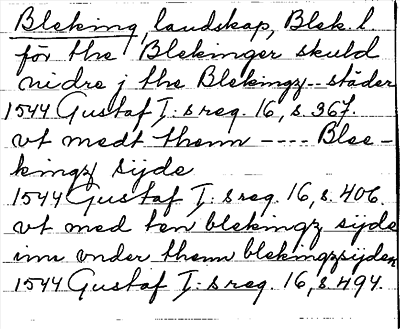 Bleking, landskap, Blek. l.
för the Blekinger skuld
nidre j the Blekingz - - städer
1544 Gustaf I: s reg. 16, s. 367.
vt medt thenn - - - - Blee-
kingz sijde
1544 Gustaf I: s reg. 16, s. 406.
vt med ten blekingz sijde
inn vnder thenn blekingzsijden
1544 Gustaf I: s reg. 16, s. 494.